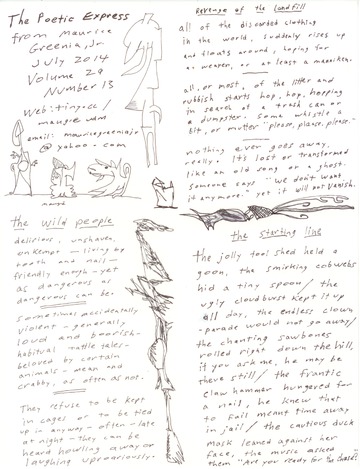 The Poetic Express
from Maurice
Greenia, Jr.
July 2014
Volume 29
Number 13
Web: tiny.cc/
maugre wdm
email: mauricegreeniajr
@yahoo.com
maugre
the wild people
delirious, unshaven,
unkempt - living by
tooth and nail -
friendly enough - yet
as dangerous as
dangerous can be.
sometimes accidentally
violent - generally
loud and boorish -
habitual tattle tales -
beloved by certain
animals - mean and
crabby, as often as not.
They refuse to be kept
in cages or to be tied
up in anyway - often - late
at night - they can be
heard howling away or
laughing uproariously.
Revenge of the Landfill
all of the discarded clothing
in the world, suddenly rises up
and floats around, hoping for
a weapon, or at least a manniken.
all, or most, of the litter and
rubbish starts hop, hop, hopping
in search of a trash can or
a dumpster. Some whistle a
bit, or mutter "please, please, please."
nothing ever goes away,
really. It's lost or transformed
like an old song or a ghost.
someone says "we don't want
it anymore." yet it will not vanish.
the starting line
the jolly tool shed held a
goon, the smirking cobwebs
hid a tiny spoon/ the
ugly cloudburst kept it up
all day, the endless clown
-parade would not go away/
the chanting sawbones
rolled right down the hill,
if you ask me, he may be
there still/ the frantic
claw hammer hungered for
a nail, he knew that
to fail meant time away
in jail/ the cautious duck
mask leaned against her
face, the music asked
them "Are you ready for the chase?"